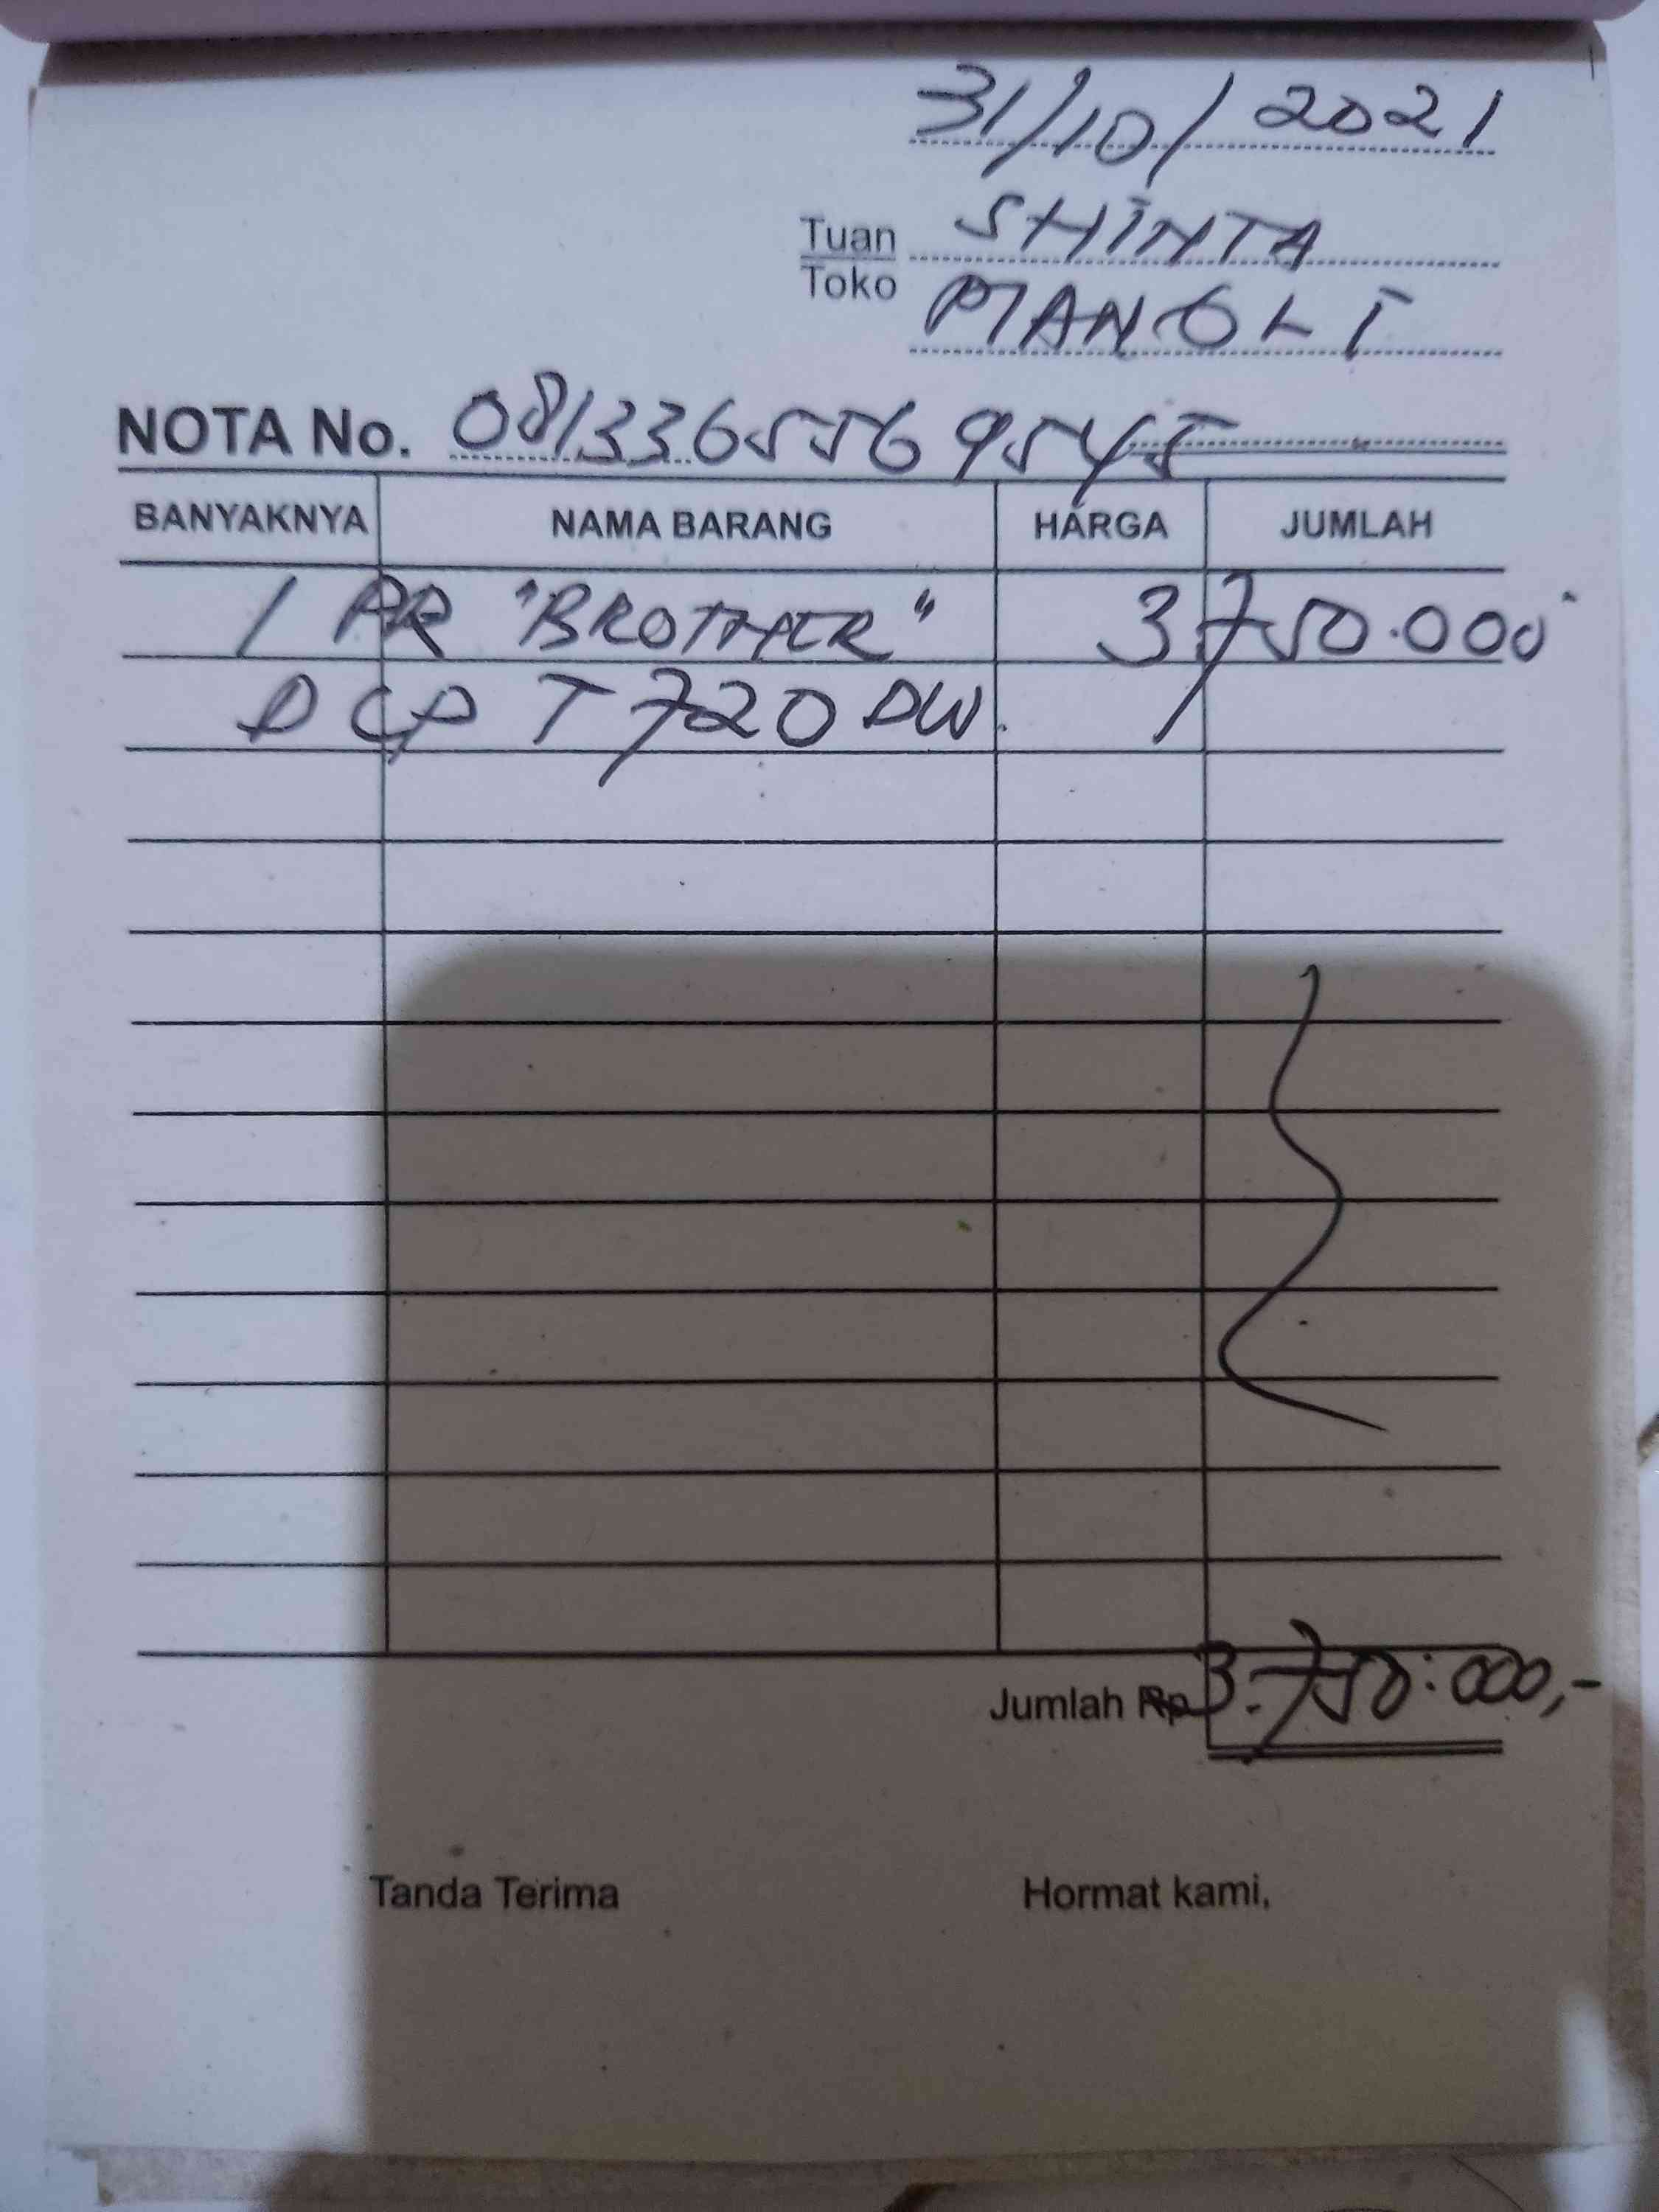 31/10/2021
Tuan SHINTA
Toko MANGLI
NOTA No. 0813365569545
BANYAKNYA NAMA BARANG HARGA JUMLAH
1 PR "BROTHER" 3.750.000
DCP T720DW
Jumlah Rp 3.750.000,-
Tanda Terima Hormat kami,